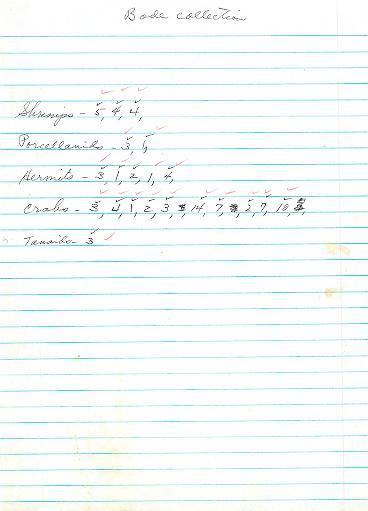 Bode collection
Shrimps - 5, 4, 4,
Porcellanids - 3, 1,
Hermits - 3, 1, 2, 1, 4,
Crabs - 3, 4, 1, 2, 3, 14, 7, 2, 7, 10
Tanaids - 3